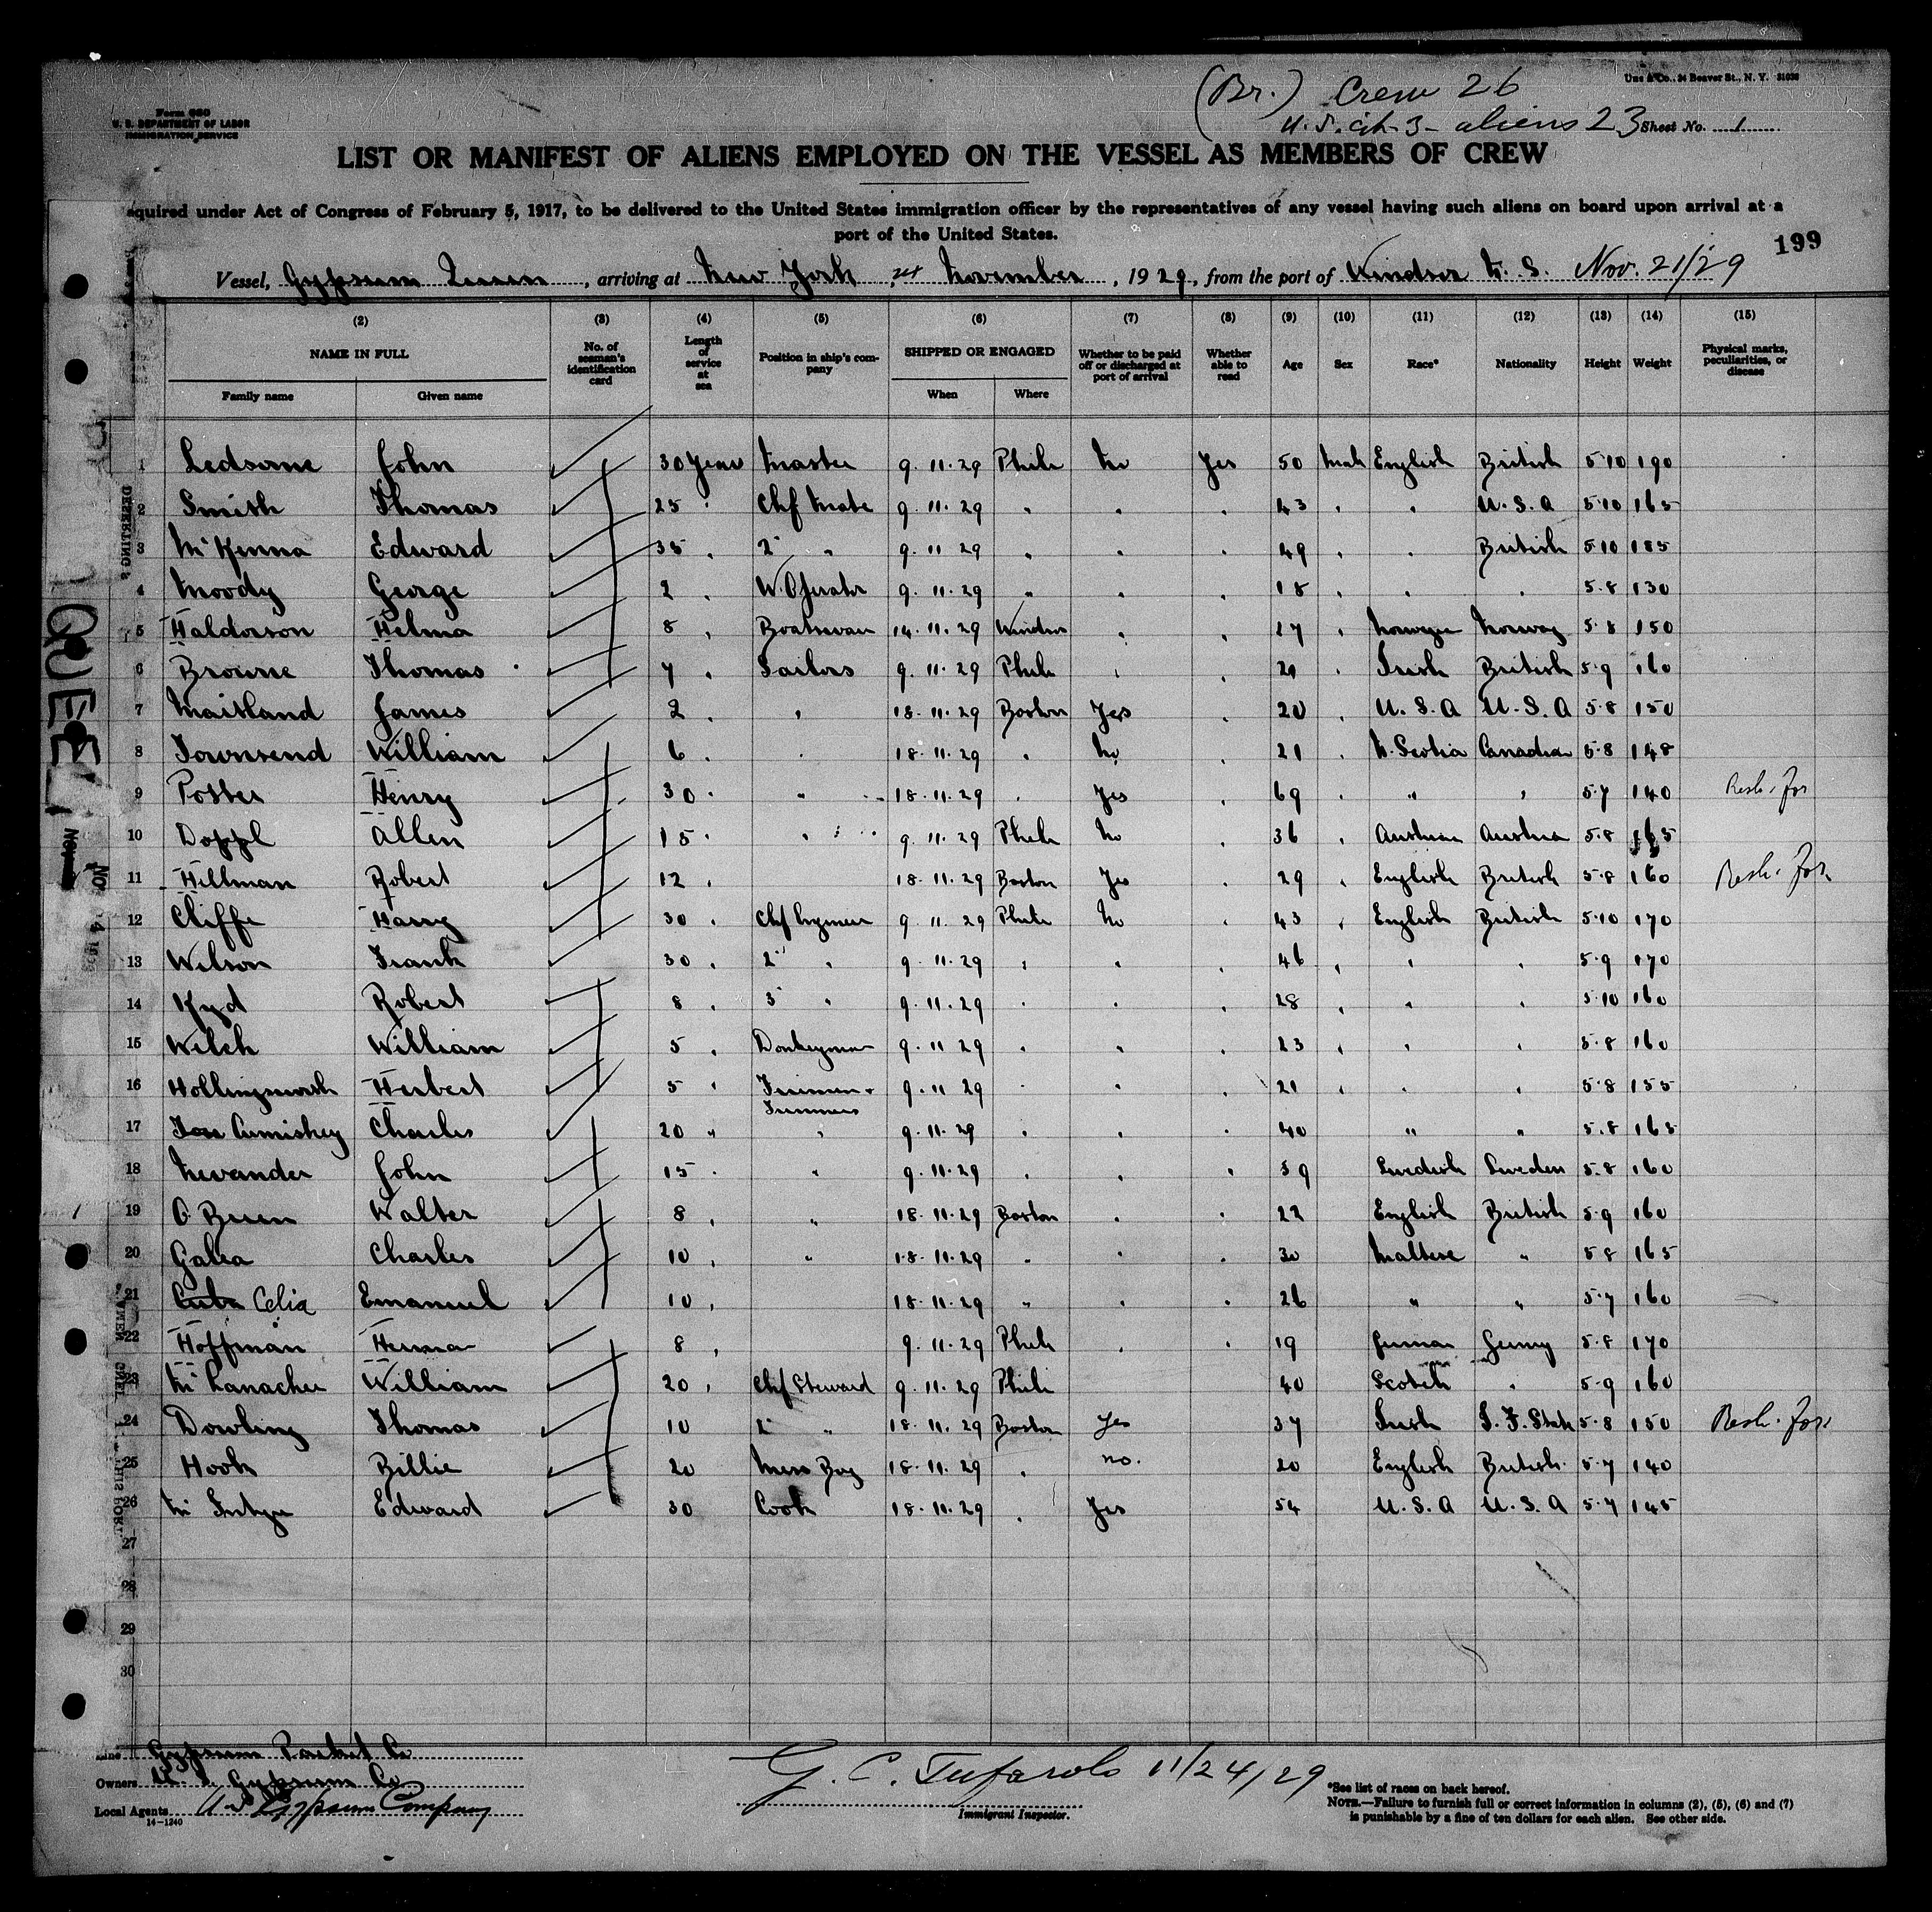 Une & Co., 24 Beaver St., N. Y.
(Br.) Crew 26
U.S. cit. 3 - aliens 23 Sheet No. 1
Form 680
U. S. DEPARTMENT OF LABOR
IMMIGRATION SERVICE
LIST OR MANIFEST OF ALIENS EMPLOYED ON THE VESSEL AS MEMBERS OF CREW
equired under Act of Congress of February 5, 1917, to be delivered to the United States immigration officer by the representatives of any vessel having such aliens on board upon arrival at a
port of the United States.
199
Vessel, Gypsum Queen, arriving at New York, November, 1929, from the port of Windsor N. S. Nov. 21/29
(2) (3) (4) (5) (6) (7) (8) (9) (10) (11) (12) (13) (14) (15)
NAME IN FULL Family name Given name No. of seaman's identification card Length of service at sea Position in ship's company SHIPPED OR ENGAGED When Where Whether to be paid off or discharged at port of arrival Whether able to read Age Sex Race* Nationality Height Weight Physical marks, peculiarities, or disease
1 Ledsome John 30 Years Master 9.11.29 Phila No Yes 50 Male English British 5.10 190
2 Smith Thomas 25 Chf Mate 9.11.29 " " " 43 " " U.S.A 5.10 165
3 McKenna Edward 35 " 2 " 9.11.29 " " " 49 " " British 5.10 185
4 Moody George 2 " W. Operator 9.11.29 " " " 18 " " " 5.8 130
5 Haldorson Helma 8 " Boatswain 14.11.29 Windsor " " 27 " Norwegn Norway 5.8 150
6 Browne Thomas 7 " Sailors 9.11.29 Phila " " 29 " Irish British 5.9 160
7 Maitland James 2 " " 18.11.29 Boston Yes " 20 " U.S.A U.S.A 5.8 150
8 Townsend William 6 " " 18.11.29 " No " 21 " N. Scotia Canadian 5.8 148
9 Potter Henry 30 " " 18.11.29 " Yes " 69 " " " 5.7 140 Resh. for
10 Doppl Allen 15 " " 9.11.29 Phila No " 36 " Austrian Austria 5.8 165
11 Hillman Robert 12 " 18.11.29 Boston Yes " 29 " English British 5.8 160 Resh. for
12 Cliffe Harry 30 " Chf Engineer 9.11.29 Phila No " 43 " English British 5.10 170
13 Wilson Frank 30 " 2 " 9.11.29 " " " 46 " " " 5.9 170
14 Kyd Robert 8 " 3 " 9.11.29 " " " 28 " " " 5.10 160
15 Welch William 5 " Donkeyman 9.11.29 " " " 23 " " " 5.8 160
16 Hollingsworth Herbert 5 " Firemen & Trimmers 9.11.29 " " " 21 " " " 5.8 155
17 Cumiskey Charles 20 " " 9.11.29 " " " 40 " " 5.8 165
18 Nevander John 15 " " 9.11.29 " " " 59 Swedish Sweden 5.8 160
19 O'Brien Walter 8 " " 18.11.29 Boston " " 22 English British 5.9 160
20 Galea Charles 10 " " 18.11.29 " " " 30 Maltese " 5.8 165
21 Celia Emanuel 10 " 18.11.29 " " " 26 " " 5.7 160
22 Hoffman Herman 8 " 9.11.29 Phila " " 19 German Germy 5.8 170
23 William 20 " Chf Steward 9.11.29 Phila 40 Scotch " 5.9 160
24 Dowling Thomas 10 2 " 18.11.29 Boston Yes 37 Irish I. F. State 5.8 150 Resh. for
25 Hook Billie 20 Mess Boy 18.11.29 " no. 20 English British 5.7 140
26 Edward 30 Cook 18.11.29 " Yes 54 U.S.A U.S.A 5.7 145
27
28
29
30
QUEE
Line Gypsum Packet Co
Owners U. S. Gypsum Co
Local Agents U S Gypsum Company
14-1240
G. C. Tufarolo 11/24/29
Immigrant Inspector.
*See list of races on back hereof.
NOTE.—Failure to furnish full or correct information in columns (2), (5), (6) and (7)
is punishable by a fine of ten dollars for each alien. See other side.